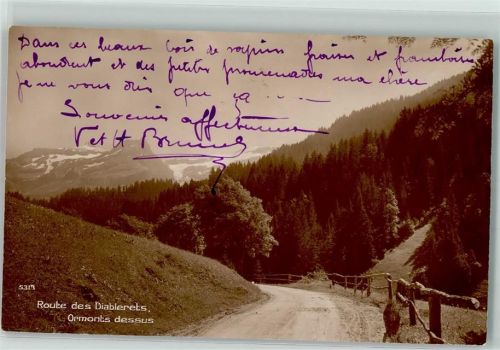 Dans ces beaux bois de sapins fraises et framboises
abondent et des petites promenades ma chère
je ne vous dis que ça ....
Souvenirs affectueux
V et H
5315
Route des Diablerets,
Ormonts dessus